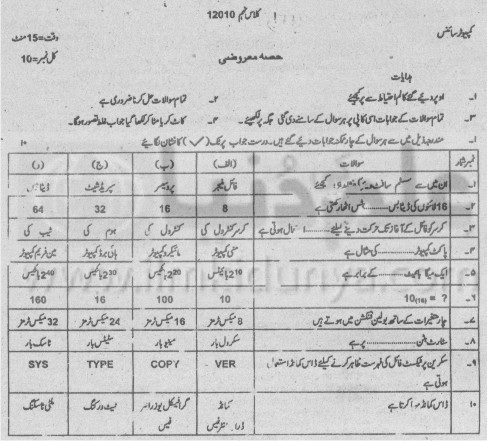 کلاس نہم 12010
کمپیوٹر سائنس
وقت=15منٹ
حصہ معروضی
کل نمبر=10
ہدایات
۱۔ اوپر دیئے گئے کالم احتیاط سے پُر کیجئے
۲۔ تمام سوالات حل کرنا ضروری ہے
۳۔ تمام سوالات کے جوابات اسی کاپی پر ہر سوال کے سامنے دی گئی جگہ پر لکھیئے۔
۴۔ کاٹ کر یا مٹا کر لکھا گیا جواب غلط تصور ہوگا۔
۱۔ مندرجہ ذیل میں سے ہر سوال کے چار ممکنہ جوابات دیئے گئے ہیں۔ درست جواب پر ٹک (✓) کا نشان لگائیے ۱۰
نمبر شمار سوالات (الف) (ب) (ج) (د)
۱۔ ان میں سے سسٹم سافٹ ویئر کیجئے فائل منیجر پروسیسر سپریڈ شیٹ ڈیٹا بیس
۲۔ 16 لائنوں کی ڈیٹا بس ........ بٹس اٹھا سکتی ہے 8 16 32 64
۳۔ کرسر کو فائل کے آغاز تک حرکت دینے کیلئے ........ استعمال ہوتی ہے کرسر کنٹرول کی کنٹرول کی ہوم کی ٹیب کی
۴۔ پاکٹ کمپیوٹر ........ کی مثال ہے منی کمپیوٹر مائیکرو کمپیوٹر ہائی برڈ کمپیوٹر مین فریم کمپیوٹر
۵۔ ایک میگا بائیٹ ........ کے برابر ہے 2¹⁰بائیٹس 2²⁰بائیٹس 2³⁰بائیٹس 2⁴⁰بائیٹس
۶۔ 10₍₁₆₎ = ? 10 100 16 160
۷۔ چار متغیرات کے ساتھ بولین فنکشن میں ہوتے ہیں 8 میکس ٹرمز 16 میکس ٹرمز 24 میکس ٹرمز 32 میکس ٹرمز
۸۔ سٹارٹ بٹن ........ پر ہے سکرول بار مینیو بار سٹیٹس بار ٹاسک بار
۹۔ سکرین پر ٹیکسٹ فائل کی فہرست ظاہر کرنے کیلئے ڈاس کمانڈ استعمال ہوتی ہے VER COPY TYPE SYS
۱۰ ڈاس کمانڈ مہیا کرتا ہے کمانڈ انٹرفیس گرافیکل یوزر انٹرفیس نیٹ ورکنگ ملٹی ٹاسکنگ